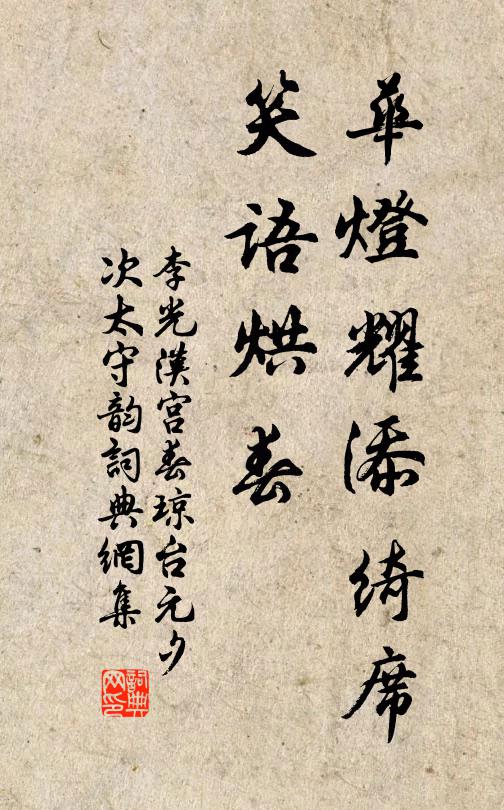 華燈耀添綺席
笑语烘春
李光漢宮春琼台元夕
次太守韵詞典網集
詞典
网印